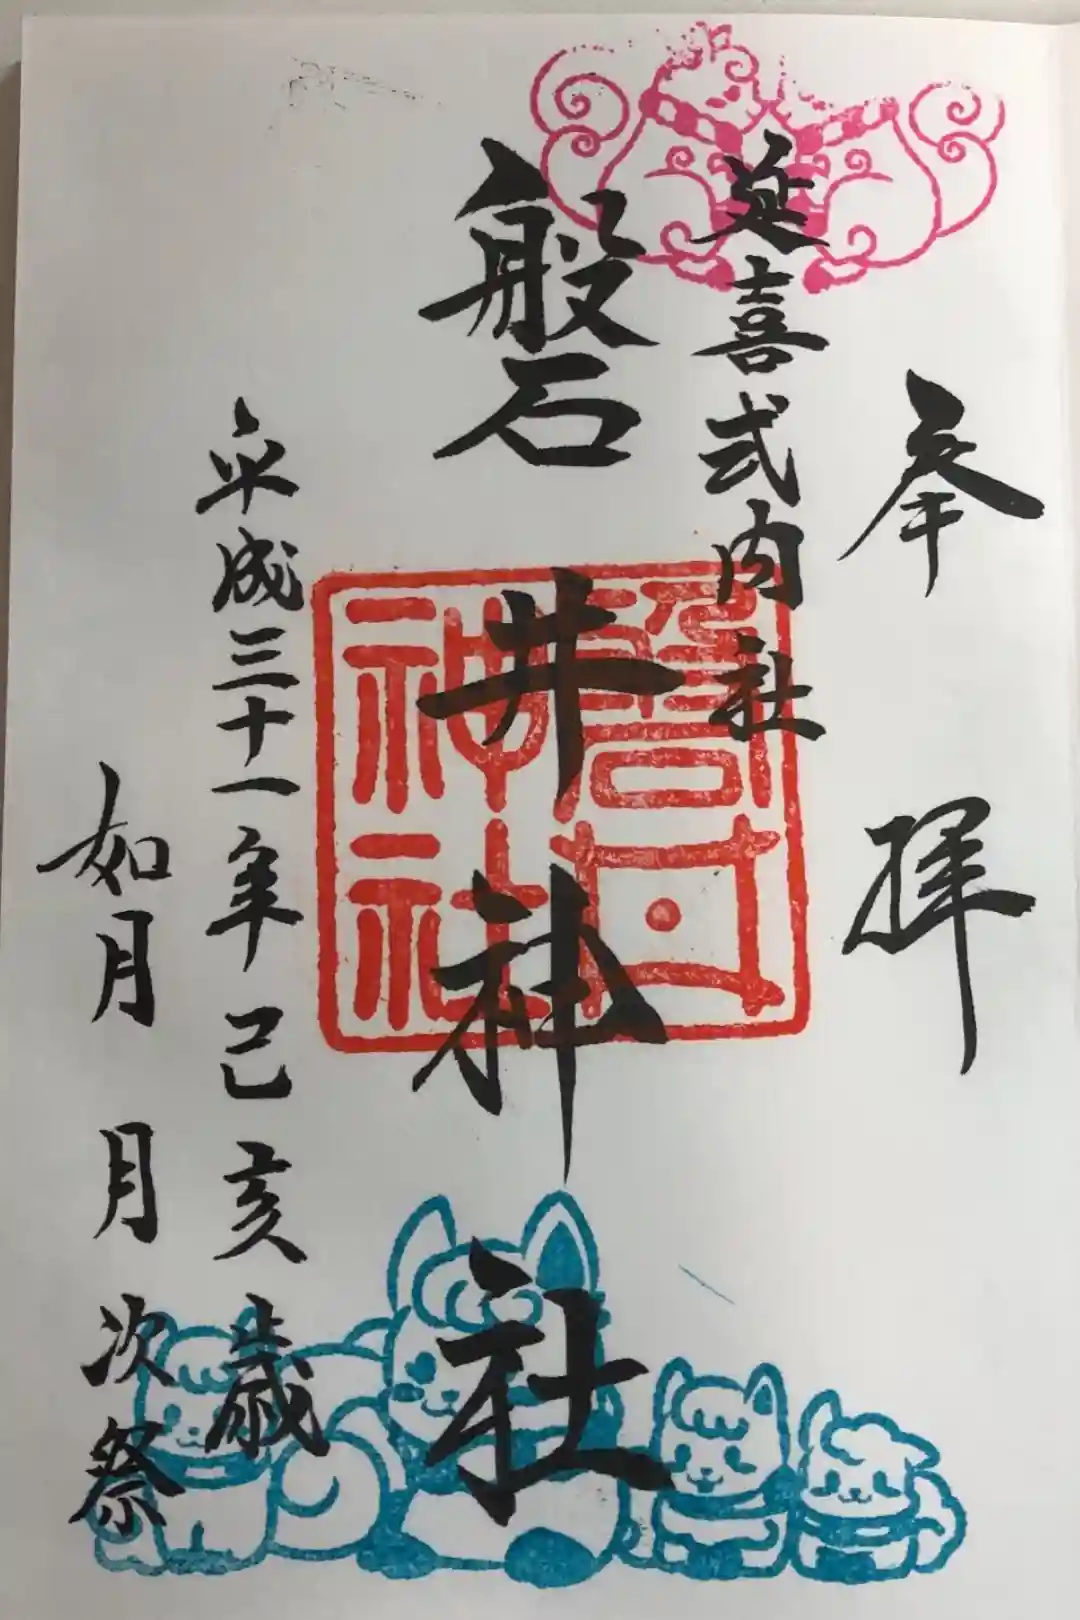 奉拝
延喜式内社
磐井神社
磐井神社
平成三十一年己亥歳
如月 月次祭